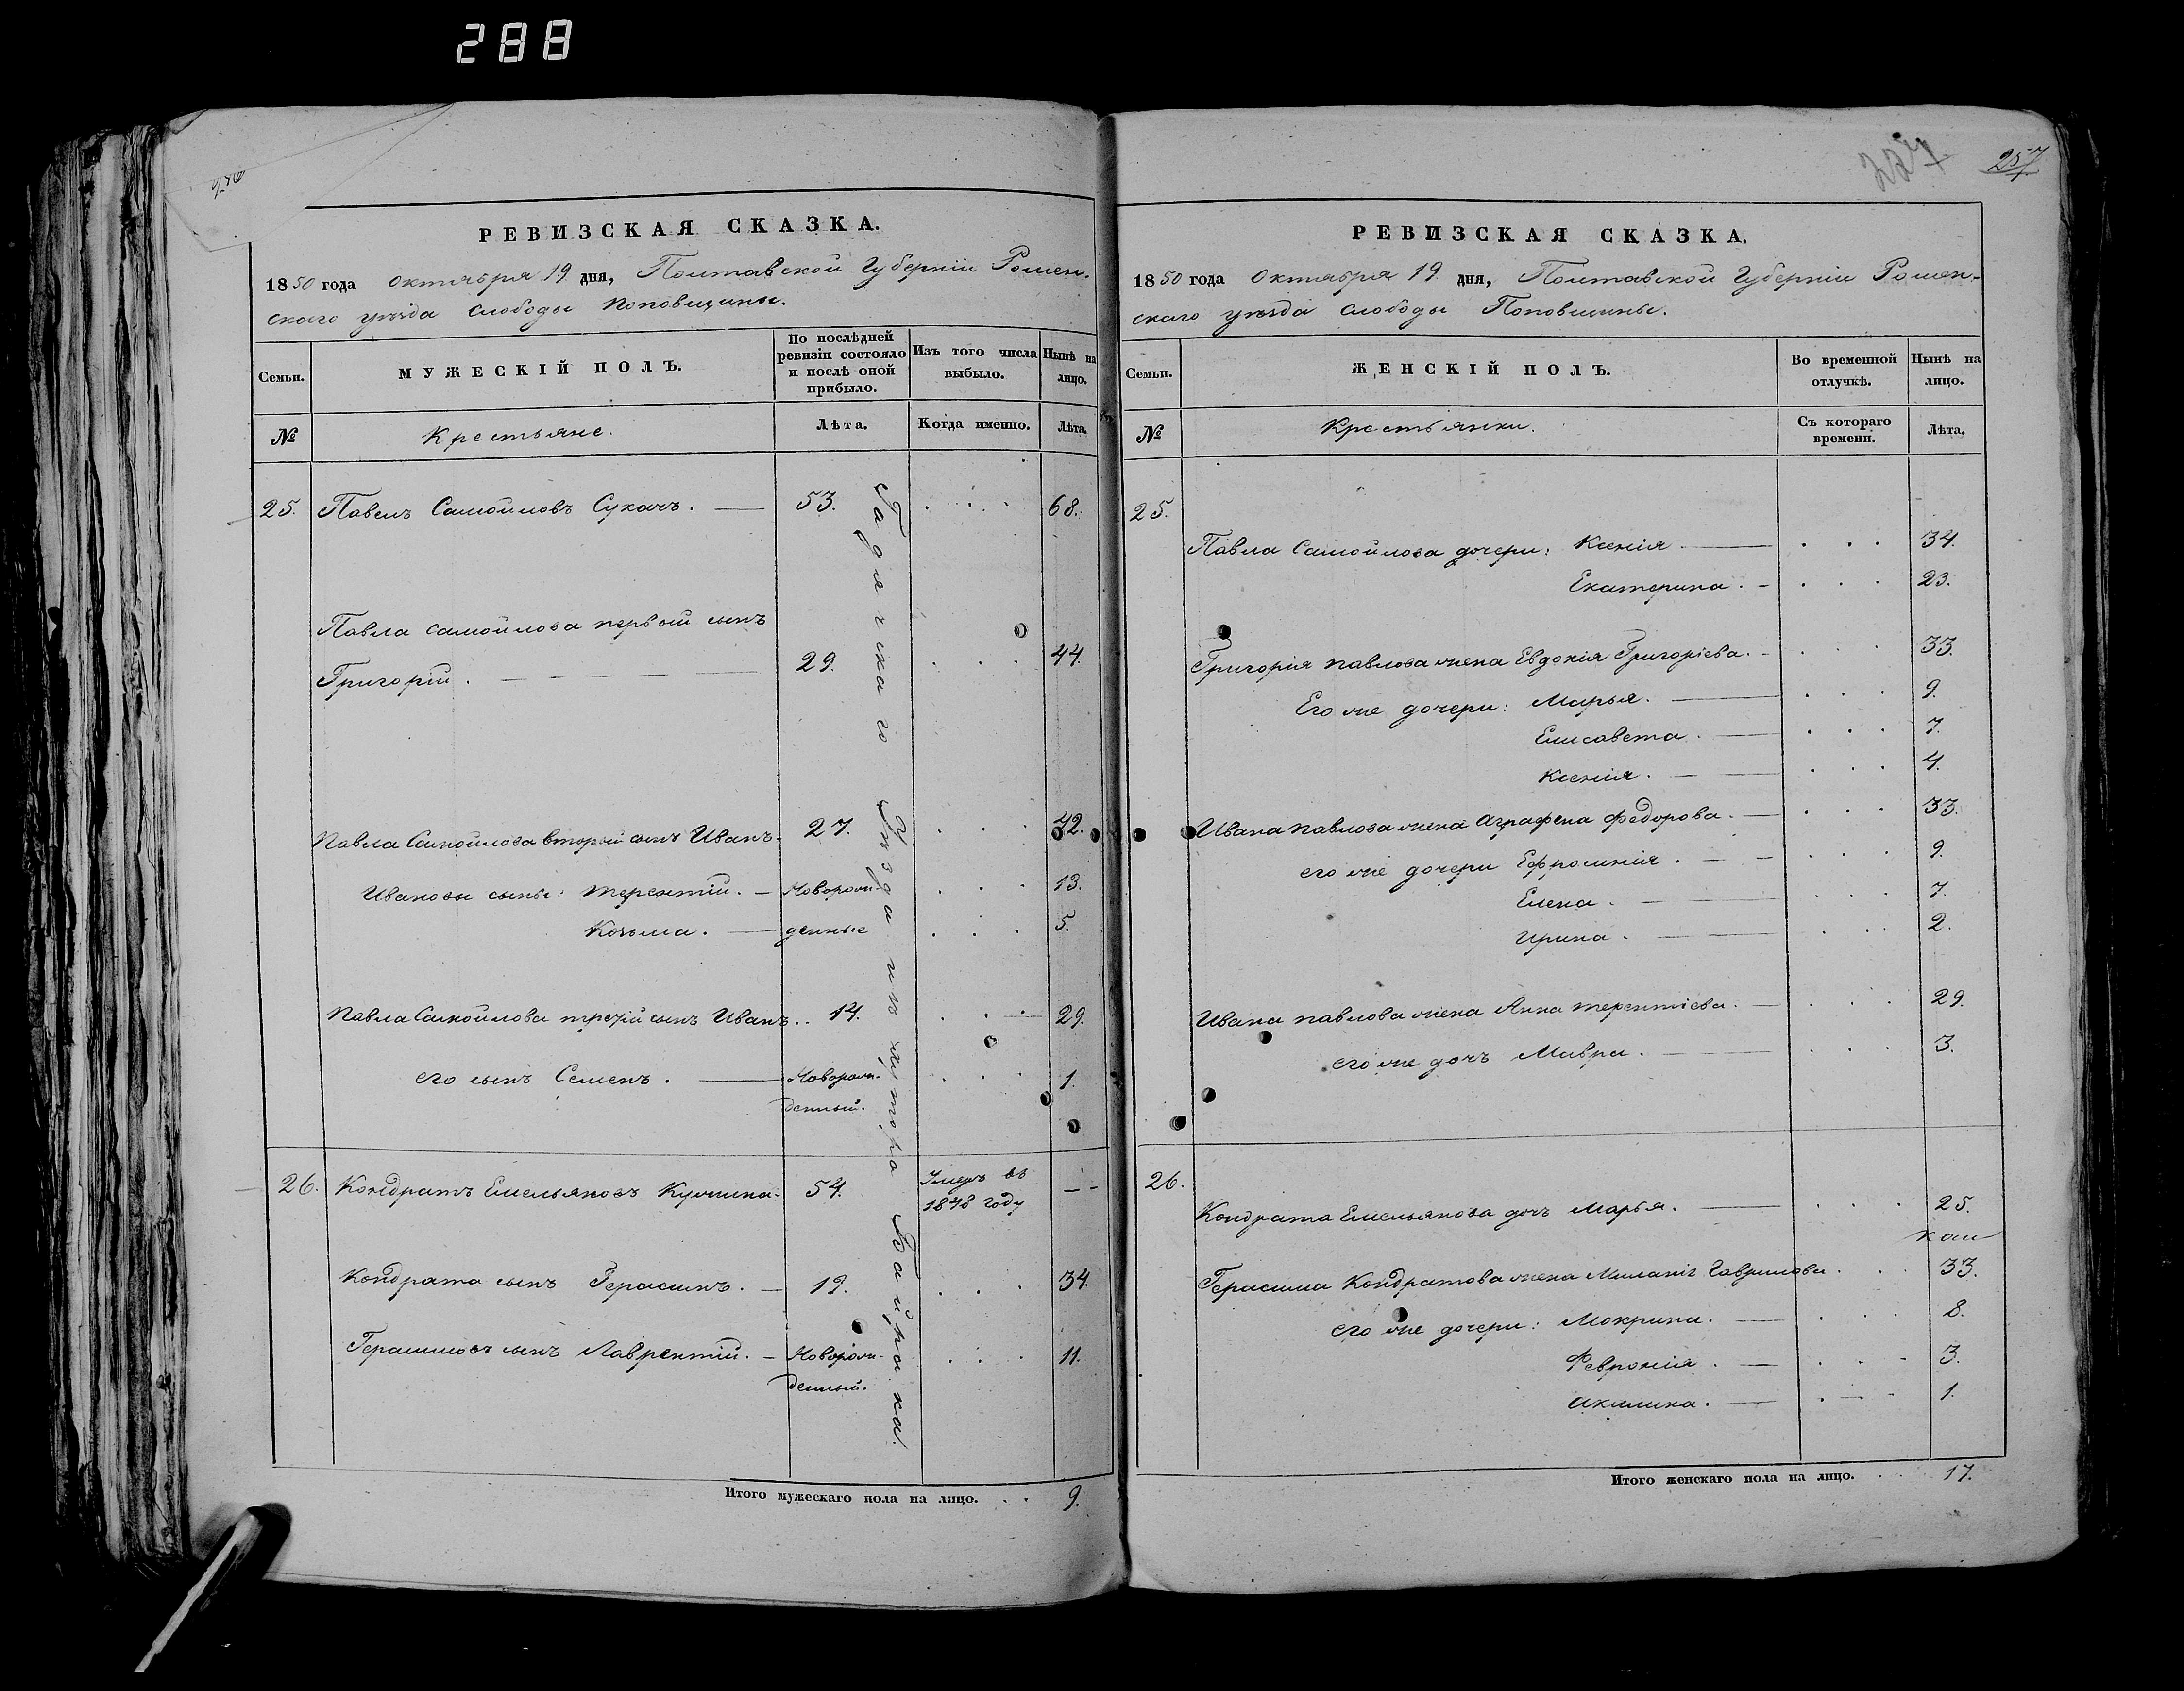 288
РЕВИЗСКАЯ СКАЗКА.
1850 года Октября 19 дня, Полтавской Губерніи Ромен-
скаго уѣзда слободы Поповщины.
Семьи.
МУЖЕСКІЙ ПОЛЪ.
По послѣдней ревизіи состояло и послѣ оной прибыло.
Изъ того числа выбыло.
Нынѣ на лицо.
№
Крестьяне.
Лѣта.
Когда именно.
Лѣта.
25. Павелъ Самойловъ Сукачъ. 53. 68.
Павла Самойлова первый сынъ
Григорій. 29. 44.
Павла Самойлова второй сынъ Иванъ. 27. 42.
Ивановы сыны: Терентій. Новорож- 13.
Козьма. денные 5.
Павла Самойлова третій сынъ Иванъ. 14. 29.
его сынъ Семенъ. Новорож- 1.
денный.
26. Кондратъ Емельяновъ 54. Умеръ въ --
1848 году
Кондрата сынъ Герасимъ. 19. 34.
Герасимовъ сынъ Лаврентій. Новорож- 11.
денный.
Гадячскаго Уѣзда
Итого мужескаго пола на лицо. 9.
257
РЕВИЗСКАЯ СКАЗКА.
1850 года Октября 19 дня, Полтавской Губерніи Ромен-
скаго уѣзда слободы Поповщины.
Семьи.
ЖЕНСКІЙ ПОЛЪ.
Во временной отлучкѣ.
Нынѣ на лицо.
№
Крестьянки.
Съ котораго времени.
Лѣта.
25.
Павла Самойлова дочери: Ксенія 34.
Екатерина. 23.
Григорія Павлова жена Евдокія Григоріева. 33.
Его же дочери: Марья. 9.
Елисавета. 7.
Ксенія. 4.
Ивана Павлова жена Аграфена Федорова. 33.
его же дочери Ефросинія. 9.
Елена. 7.
Ирина. 2.
Ивана Павлова жена Анна Терентіева. 29.
его же дочь Мавра. 3.
26.
Кондрата Емельянова дочь Марья. 25.
Герасима Кондратова жена Миланія Гаврилова. 33.
его же дочери: Мокрина. 8.
Февронія. 3.
Акилина. 1.
Итого женскаго пола на лицо. 17.